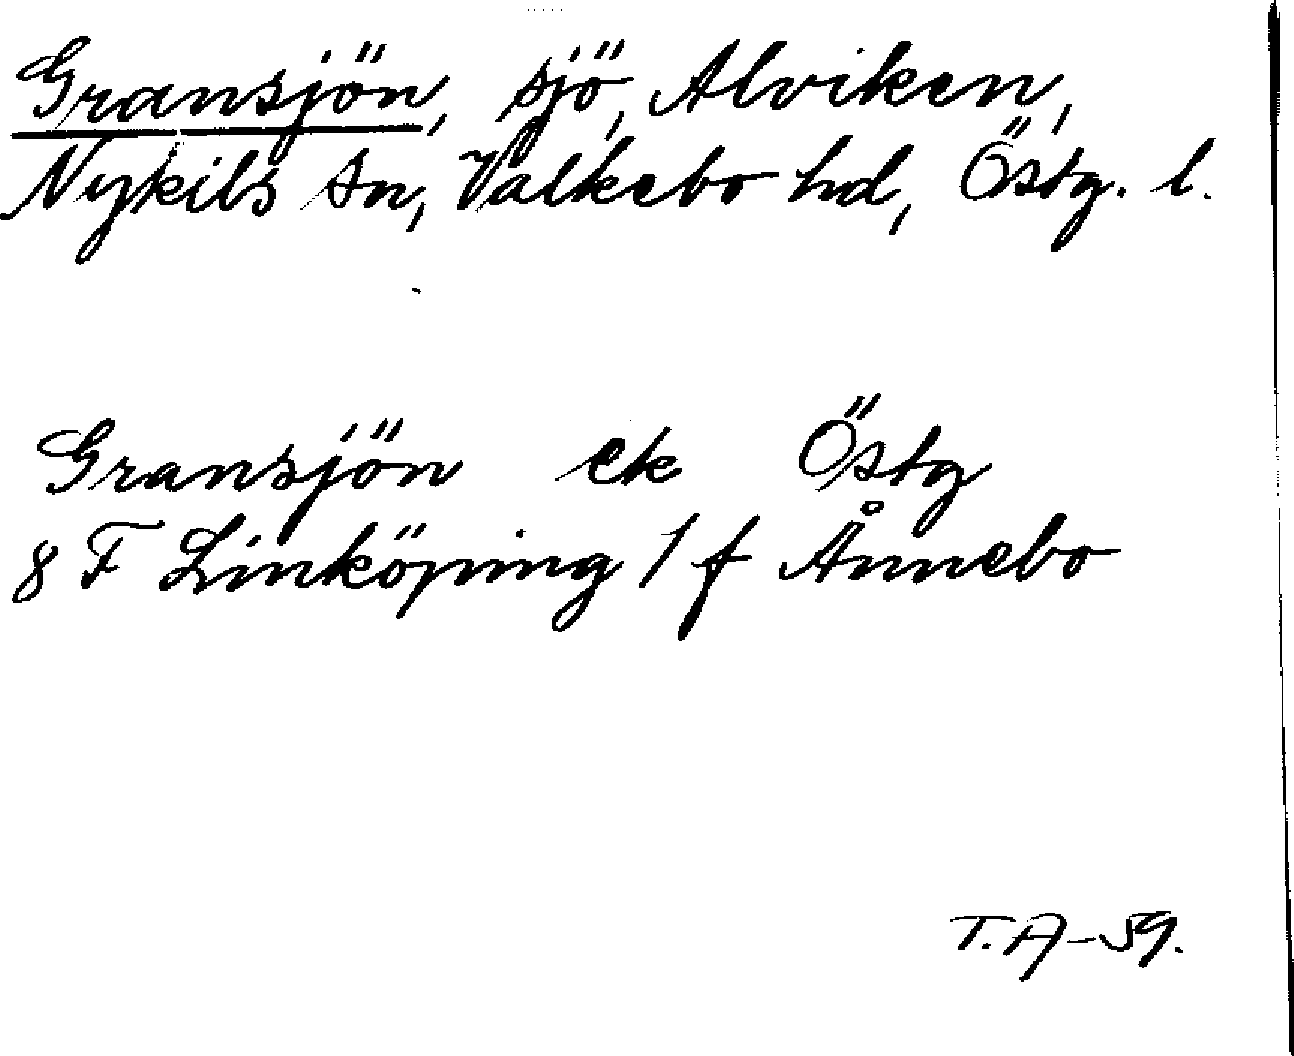 Gransjön, sjö, Alviken,
Nykils sn, Valkebo hd, Östg. l.
Gransjön ek Östg
8 F Linköping 1 f Ånnebo
T.A-59.